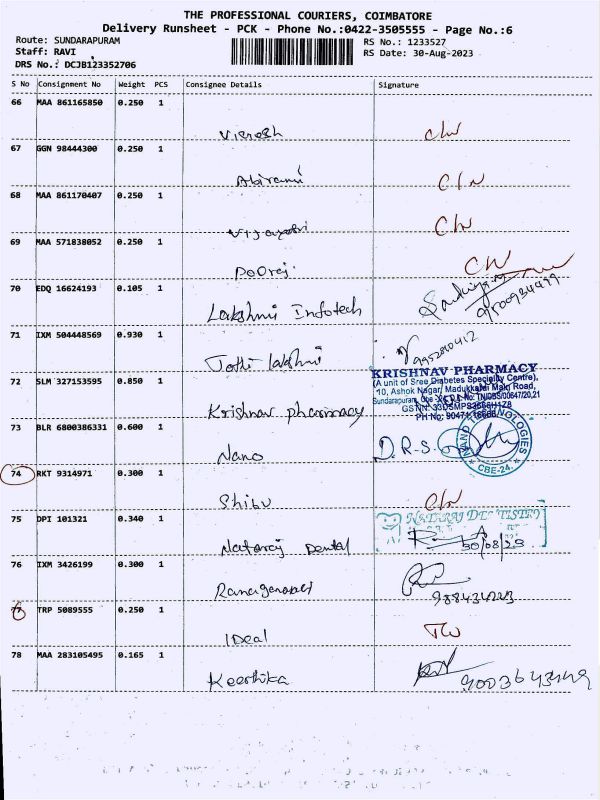 THE PROFESSIONAL COURIERS, COIMBATORE
Delivery Runsheet - PCK - Phone No.:0422-3505555 - Page No.:6
Route: SUNDARAPURAM
RS No.: 1233527
Staff: RAVI
RS Date: 30-Aug-2023
DRS No.: DCJB123352706
S No Consignment No Weight PCS Consignee Details Signature
66 MAA 861165850 0.250 1
Vignesh C/W
67 GGN 98444300 0.250 1
Abirami C/W
68 MAA 861170407 0.250 1
C/W
69 MAA 571838052 0.250 1
Pooraj C/W
70 EDQ 16624193 0.105 1
Lakshmi Infotech
71 IXM 504448569 0.930 1
Jothi lakshmi 9952840412
72 SLM 327153595 0.850 1
KRISHNAV PHARMACY
(A unit of Sree Diabetes Speciality Centre),
10, Ashok Nagar, Madukkarai Main Road,
Sundarapuram,
Krishnav pharmacy
73 BLR 6800386331 0.600 1
Nano D.R-S.
NANO TECHNOLOGIES
CBE-24.
74 RKT 9314971 0.300 1
Shibu C/W
75 DPI 101321 0.340 1
NATARAJ
Nataraj Dental 30/08/23
76 IXM 3426199 0.300 1
77 TRP 5089555 0.250 1
IDeal
78 MAA 283105495 0.165 1
Keerthika